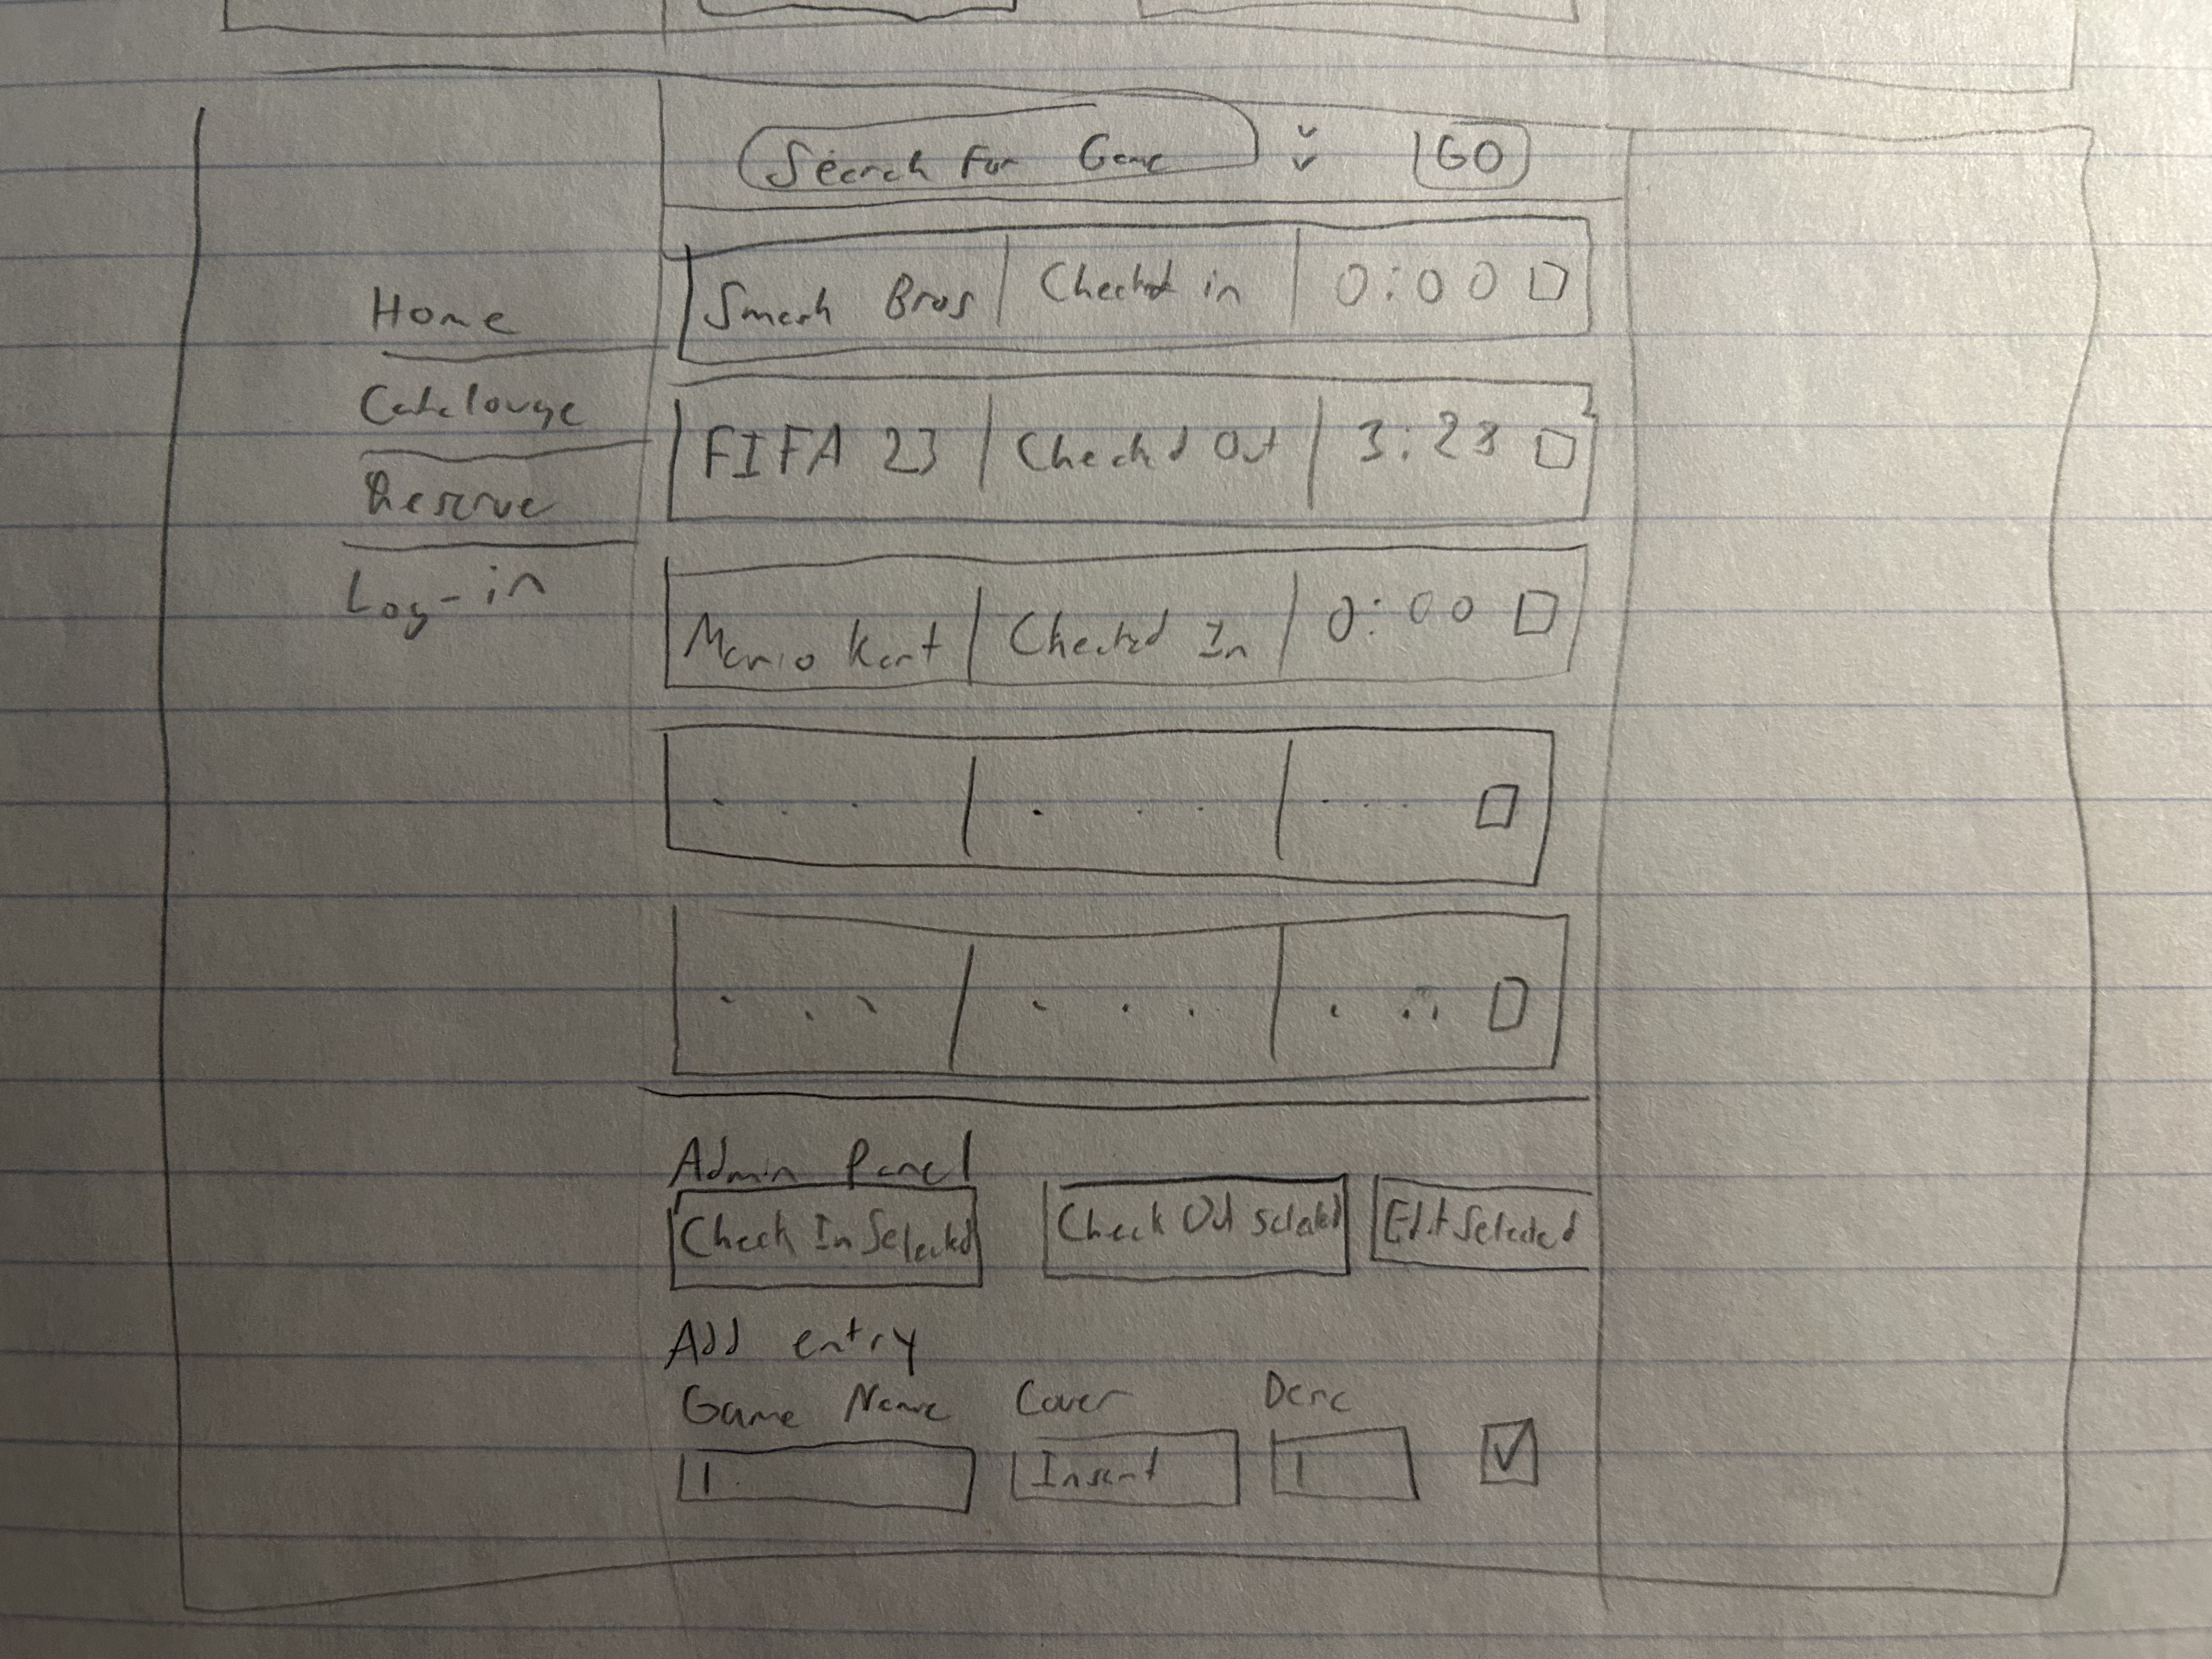 Search For Game GO
Home
Catalouge
Reserve
Log-in
Smash Bros Checked in 0:00
FIFA 23 Checked Out 3:23
Mario Kart Checked In 0:00
. . . . . . . . .
. . . . . . . . .
Admin Panel
Check In Selected Check Out selected Edit Selected
Add entry
Game Name Cover Desc
Insert